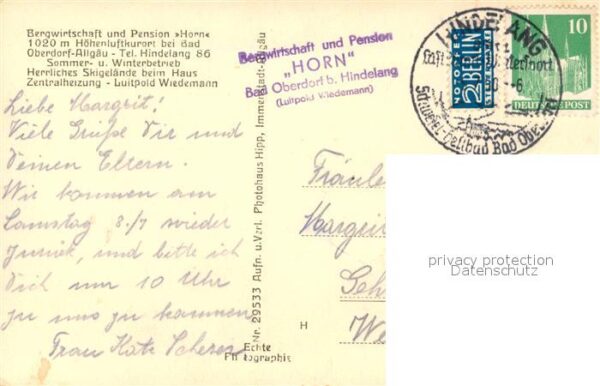 Bergwirtschaft und Pension »Horn«
1020 m Höhenluftkurort bei Bad
Oberdorf-Allgäu - Tel. Hindelang 86
Sommer- u. Winterbetrieb
Herrliches Skigelände beim Haus
Zentralheizung - Luitpold Wiedemann
Bergwirtschaft und Pension
„HORN"
Bad Oberdorf b. Hindelang
(Luitpold Wiedemann)
HINDELANG
Bad Ober
NOTOPFER
2 BERLIN
STEUERMARKE
10
DEUTSCHE POST
Liebe Margrit!
Viele Grüße Dir und
Deinen Eltern.
Wir kommen am
Samstag 8./7 wieder
zurück, und bitte ich
Dich um 10 Uhr
zu uns zu kommen
Frau Käte Scherer
Nr. 29533 Aufn. u. Verl. Photohaus Hipp, Immenstadt-Allgäu
Echte
Photographie
H
Fräule
Margrit
Sch
W
privacy protection
Datenschutz